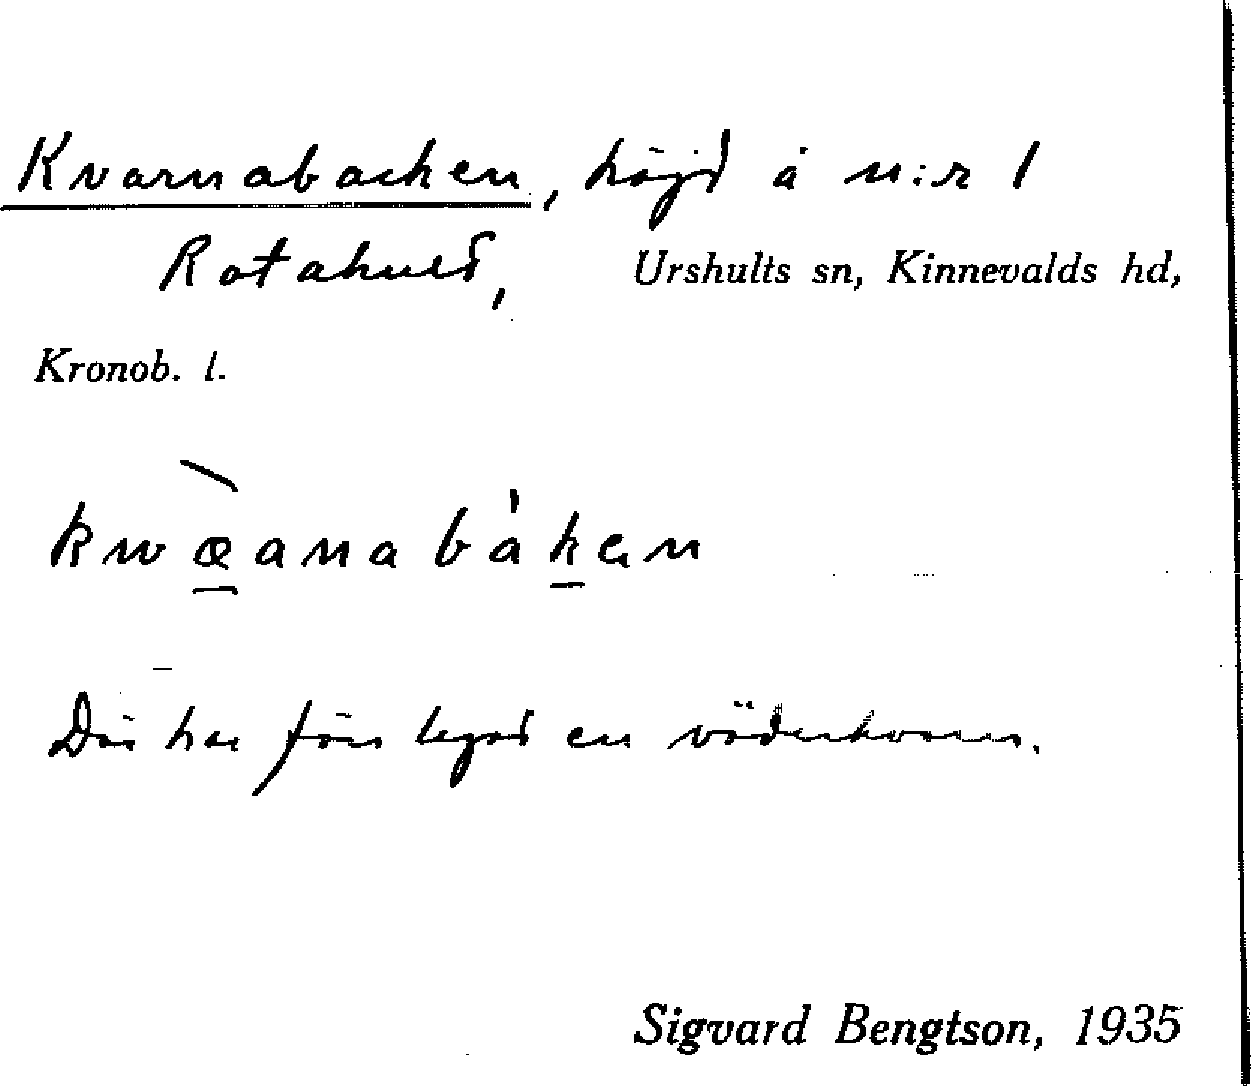 Kvarnabacken, höjd å n:r 1
Rotahult, Urshults sn, Kinnevalds hd,
Kronob. l.
kwæanabàken
Där har förr legat en väderkvarn.
Sigvard Bengtson, 1935